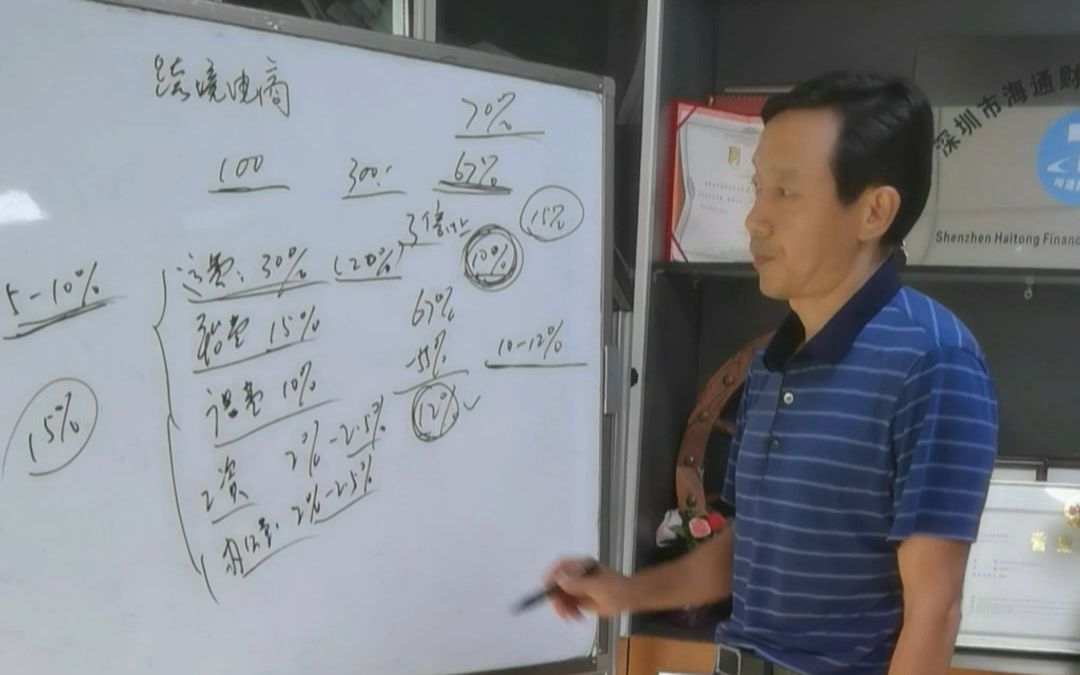 跨境电商
70%
100 300 67%
3倍 15%
运费: 30% (20%) 10%
5-10%
15% 67%
-55% 10-12%
10% 12%
15%
工资 2%-2.5%
办公 2%-2.5%
深圳市海通财
Shenzhen Haitong Financ